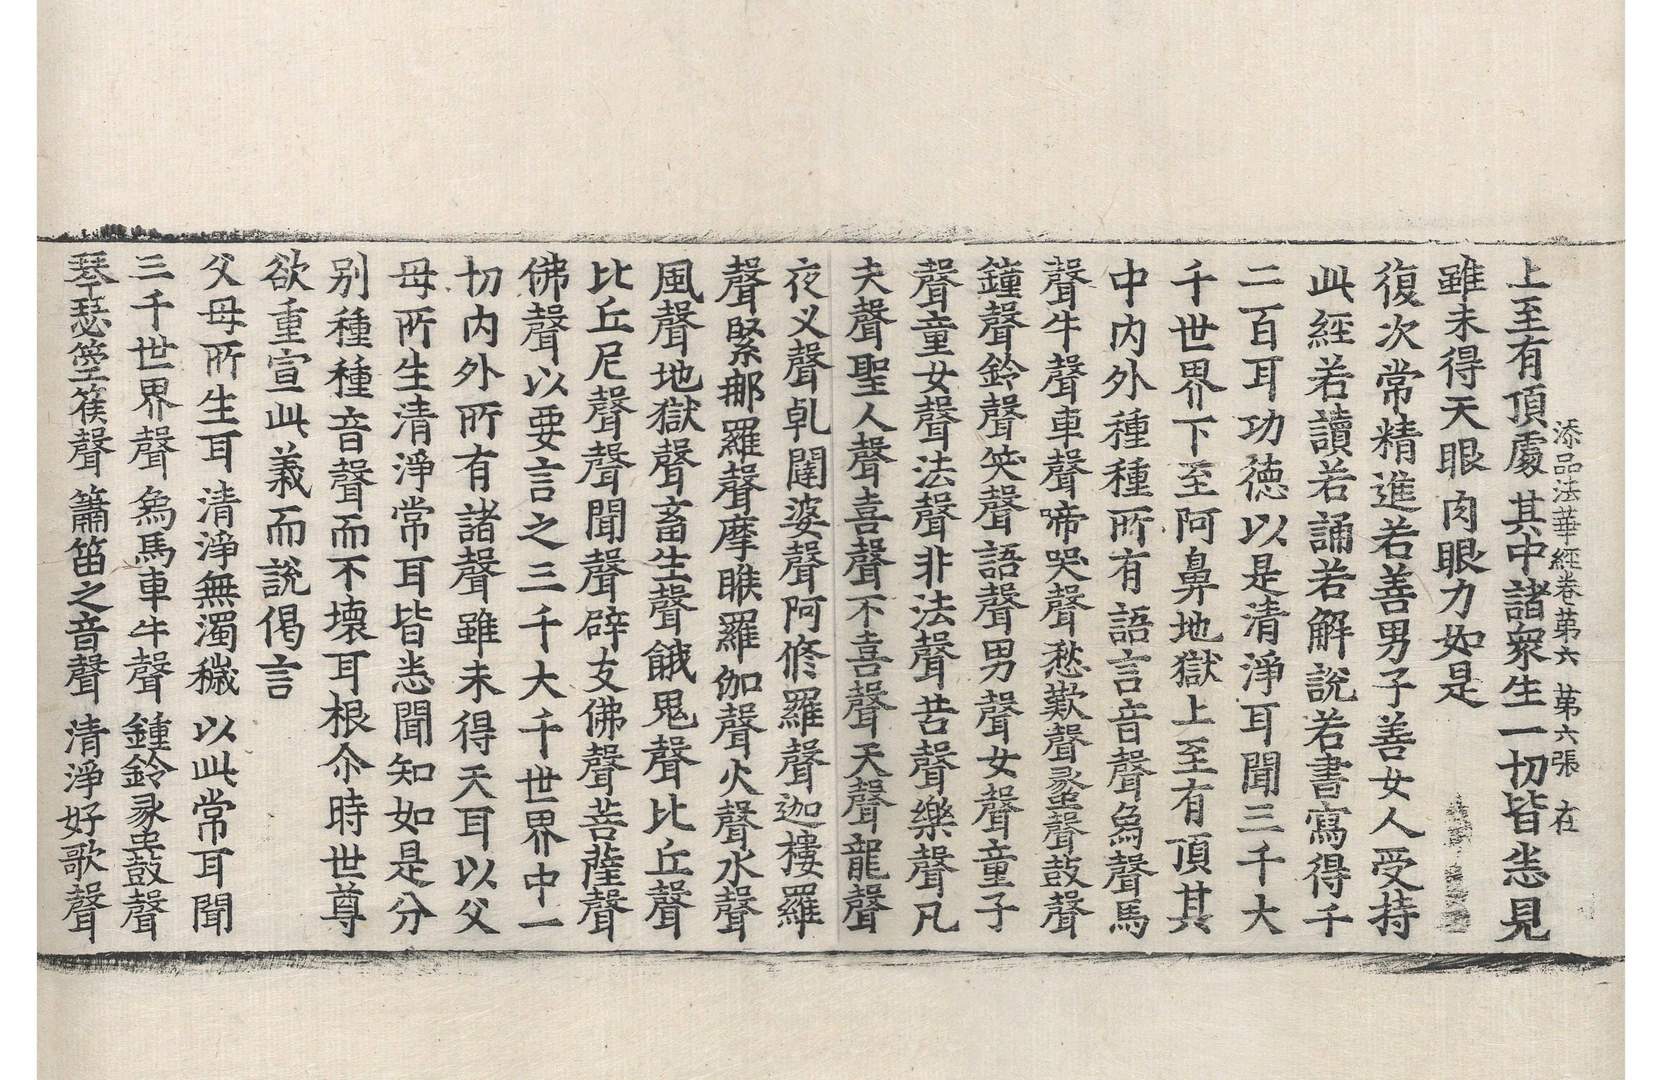 添品法華經卷第六 第六張 在
上至有頂處其中諸衆生一切皆悉見
雖未得天眼肉眼力如是
復次常精進若善男子善女人受持
此經若讀若誦若解說若書寫得千
二百耳功德以是清淨耳聞三千大
千世界下至阿鼻地獄上至有頂其
中內外種種所有語言音聲象聲馬
聲牛聲車聲啼哭聲愁歎聲螺聲鼓聲
鐘聲鈴聲笑聲語聲男聲女聲童子
聲童女聲法聲非法聲苦聲樂聲凡
夫聲聖人聲喜聲不喜聲天聲龍聲
夜叉聲乹闥婆聲阿修羅聲迦樓羅
聲緊那羅聲摩睺羅伽聲火聲水聲
風聲地獄聲畜生聲餓鬼聲比丘聲
比丘尼聲聲聞聲辟支佛聲菩薩聲
佛聲以要言之三千大千世界中一
切內外所有諸聲雖未得天耳以父
母所生清淨常耳皆悉聞知如是分
別種種音聲而不壞耳根尒時世尊
欲重宣此義而說偈言
父母所生耳 清淨無濁穢 以此常耳聞
三千世界聲 象馬車牛聲 鍾鈴螺鼓聲
琴瑟箜篌聲 簫笛之音聲 清淨好歌聲